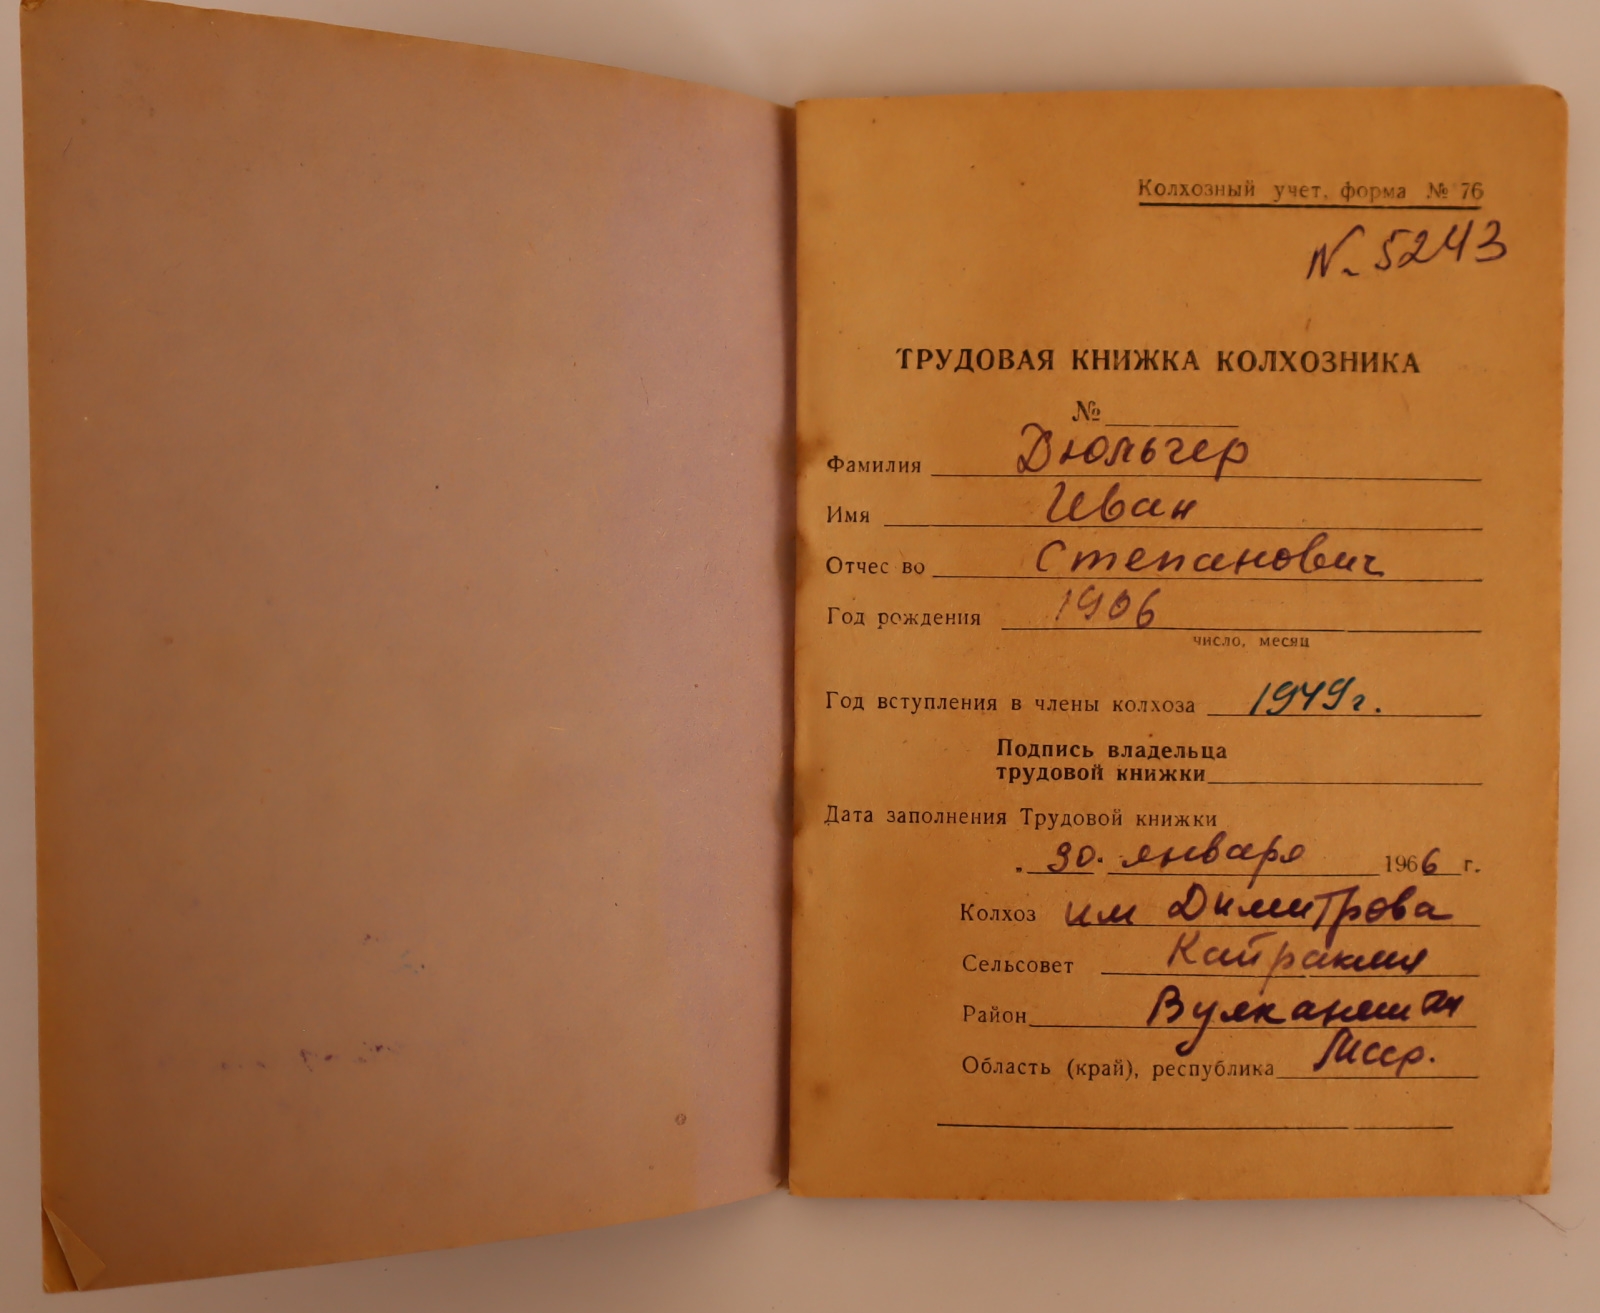 Колхозный учет, форма № 76
№ 5243
ТРУДОВАЯ КНИЖКА КОЛХОЗНИКА
№
Фамилия Дюльгер
Имя Иван
Отчес во Степанович
Год рождения 1906
число, месяц
Год вступления в члены колхоза 1949г.
Подпись владельца
трудовой книжки
Дата заполнения Трудовой книжки
30. января 1966 г.
Колхоз им Димитрова
Сельсовет Кайраклия
Район
Область (край), республика Мсср.